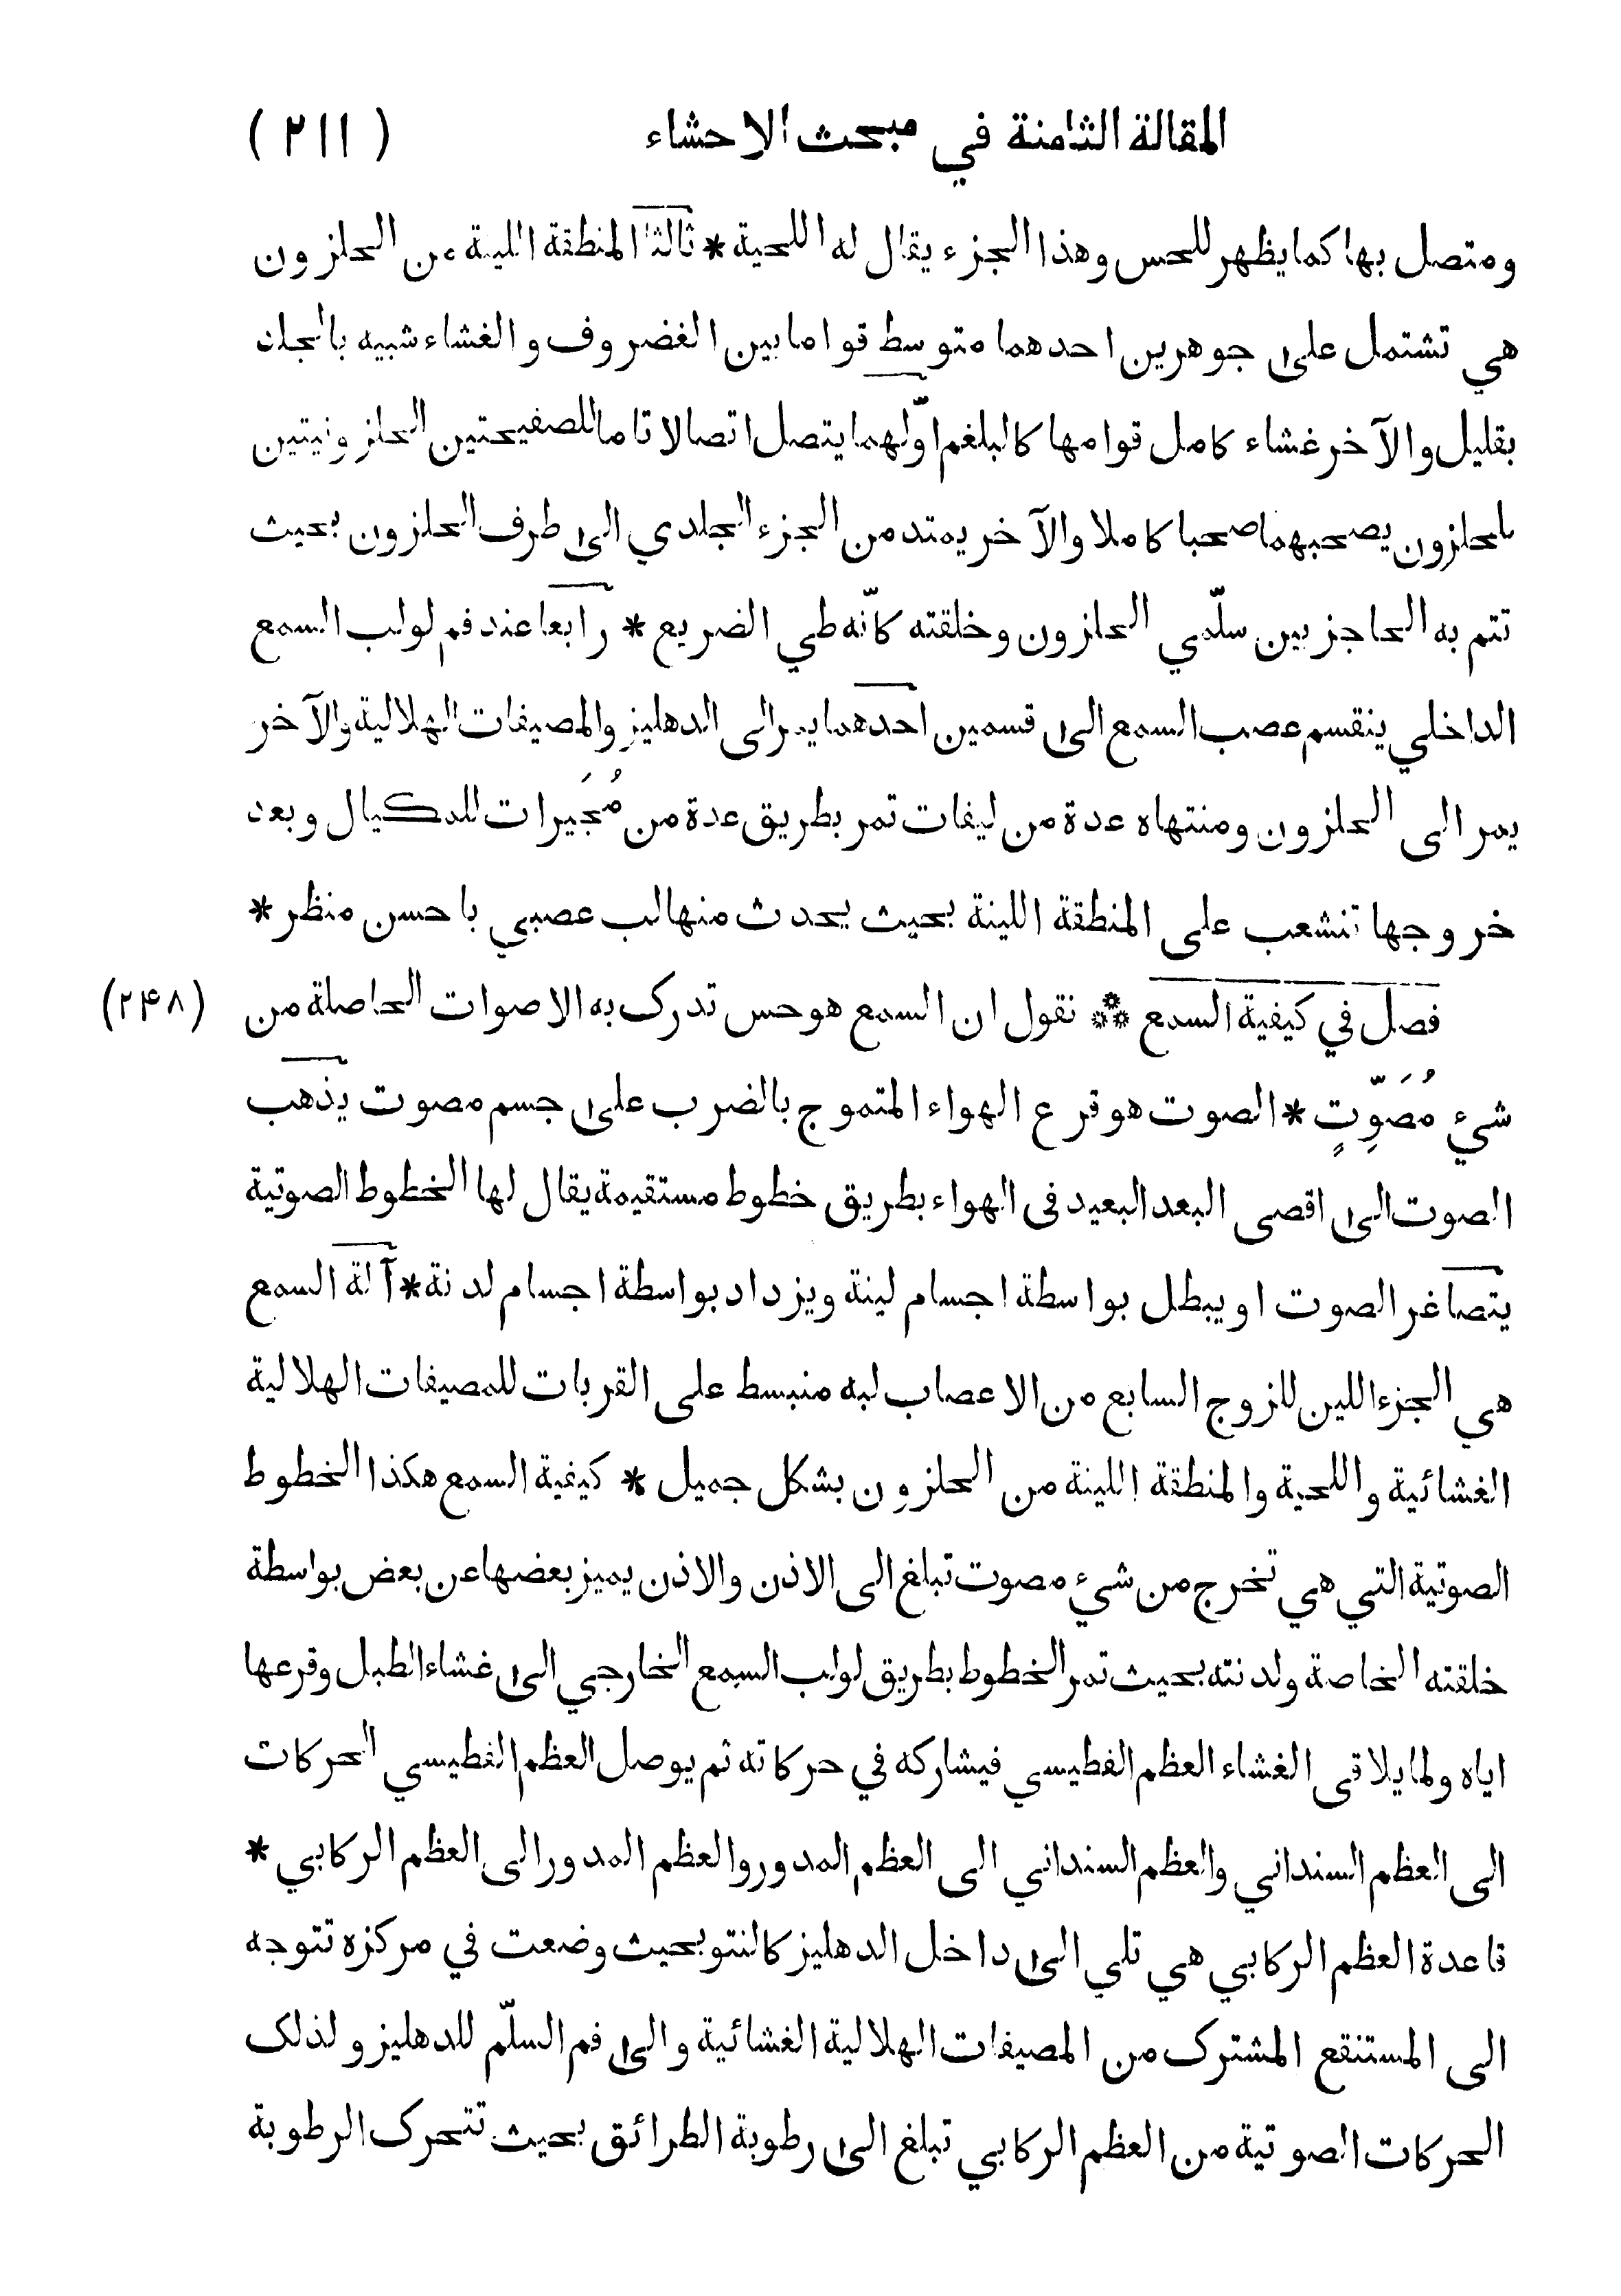 المقالة الثامنة في مبحث الاحشاء (٢١١)
ومتصل بها كما يظهر للحس وهذا الجزء يقال له اللحية * ثالثا المنطقة اللينة من الحلزون
هي تشتمل على جوهرين احدهما متوسط قواما بين الغضروف والغشاء شبيه بالجلد
بقليل والآخر غشاء كامل قوامها كالبلغم اوّلهما يتصل اتصالا تاما للصفيحتين الحلزونيتين
لحلزون يصحبهما صحبا كاملا والآخر يمتد من الجزء الجلدي الى طرف الحلزون بحيث
تتم به الحاجز بين سلّمي الحلزون وخلقته كانّه طي الضريع * رابعا عند فم لولب السمع
الداخلي ينقسم عصب السمع الى قسمين احدهما يمر الى الدهليز والمصيفات الهلالية والآخر
يمر الى الحلزون ومنتهاه عدة من ليفات تمر بطريق عدة من مُجَيرات للمكيال وبعد
خروجها تنشعب على المنطقة اللينة بحيث يحدث منها لب عصبي باحسن منظر *
فصل في كيفية السمع ⁂ نقول ان السمع هو حس تدرك به الاصوات الحاصلة من (٢۴٨)
شيء مُصَوِّتٍ * الصوت هو قرع الهواء المتموج بالضرب على جسم مصوت يذهب
الصوت الى اقصى البعد البعيد فى الهواء بطريق خطوط مستقيمة يقال لها الخطوط الصوتية
يتصاغر الصوت او يبطل بواسطة اجسام لينة ويزداد بواسطة اجسام لدنة * آلة السمع
هي الجزء اللين للزوج السابع من الاعصاب لبه منبسط على القربات للمصيفات الهلالية
الغشائية واللحية والمنطقة اللينة من الحلزون بشكل جميل * كيفية السمع هكذا الخطوط
الصوتية التي هي تخرج من شيء مصوت تبلغ الى الاذن والاذن يميز بعضها عن بعض بواسطة
خلقته الخاصة ولدنته بحيث تمر الخطوط بطريق لولب السمع الخارجي الى غشاء الطبل وقرعها
اياه ولما يلاقى الغشاء العظم الفطيسي فيشاركه في حركاته ثم يوصل العظم الفطيسي الحركات
الى العظم السنداني والعظم السنداني الى العظم المدور والعظم المدور الى العظم الركابي *
قاعدة العظم الركابي هي تلي الى داخل الدهليز كالنتو بحيث وضعت في مركزه تتوجه
الى المستنقع المشترك من المصيفات الهلالية الغشائية والى فم السلّم للدهليز ولذلك
الحركات الصوتية من العظم الركابي تبلغ الى رطوبة الطرائق بحيث تتحرك الرطوبة